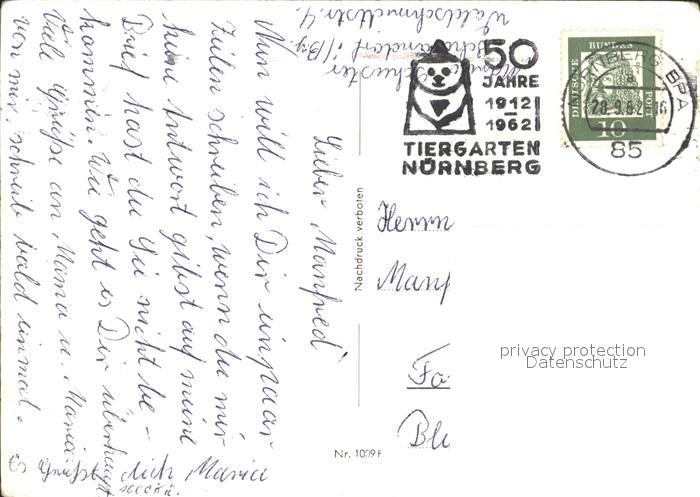 Lieber Manfred
Nun will ich Dir ein paar
Zeilen schreiben, wenn du mir
keine Antwort gibst auf meine
Brief hast du Sie nicht be-
kommen. Wie geht es Dir überhaupt
Viele Grüße an Mama u. Maria
von mir, schreib bald einmal.
Es grüßt dich Maria
Schuster
Waldschmidtstr. 4.
50
JAHRE
1912
–
1962
TIERGARTEN
NÜRNBERG
DEUTSCHE
BUNDES
POST
10
NÜRNBERG BPA
28.9.62-16
85
Nachdruck verboten
Herrn
Manf
Fo
Ble
privacy protection
Datenschutz
Nr. 1009F